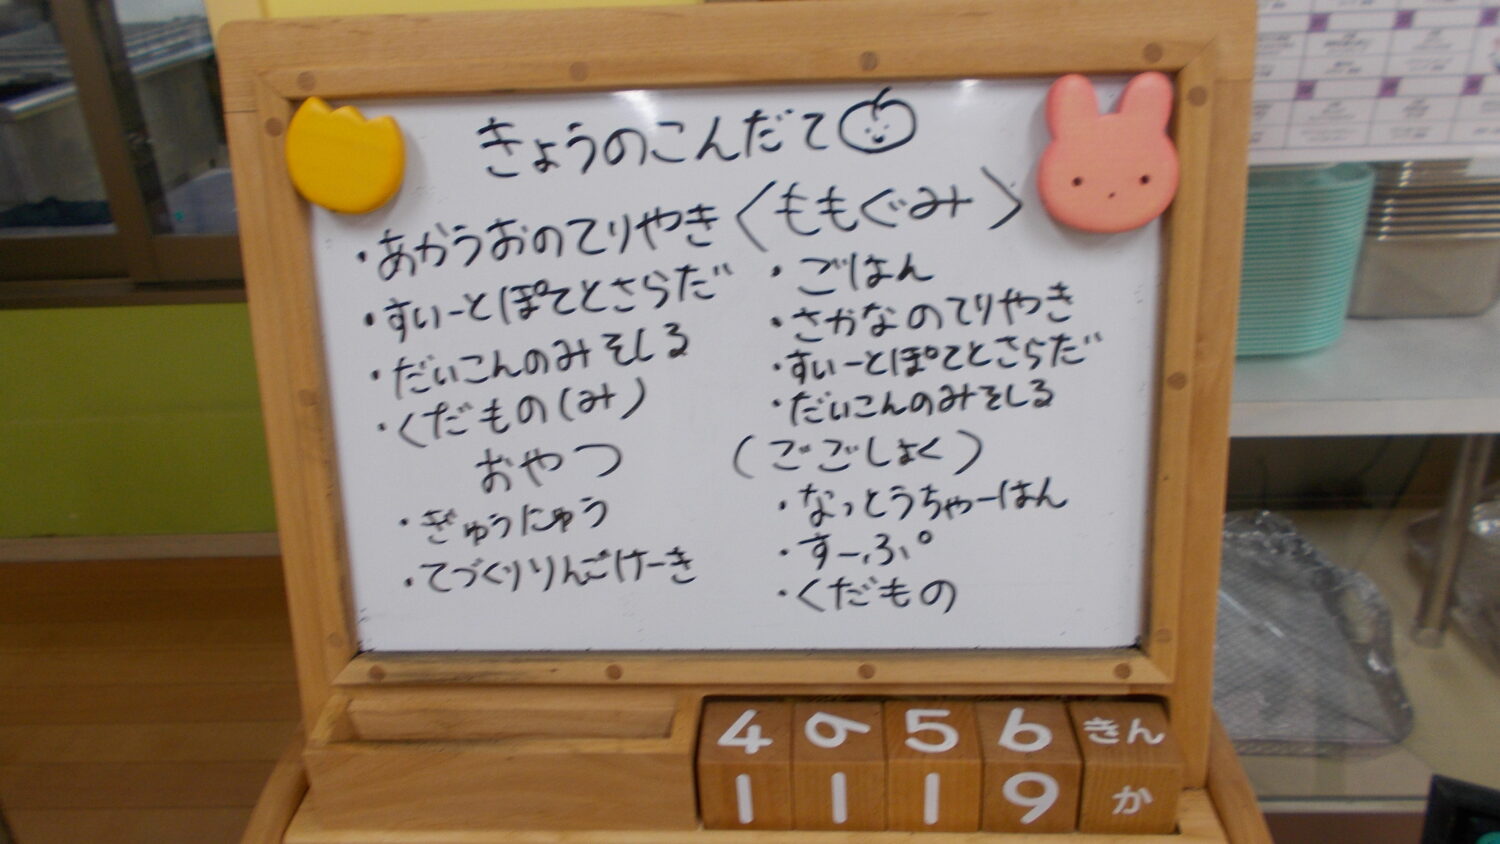 きょうのこんだて
・あかうおのてりやき
・すいーとぽてとさらだ
・だいこんのみそしる
・くだもの(み)
おやつ
・ぎゅうにゅう
・てづくりりんごけーき
〈ももぐみ〉
・ごはん
・さかなのてりやき
・すいーとぽてとさらだ
・だいこんのみそしる
(ごごしょく)
・なっとうちゃーはん
・すーぷ
・くだもの
4 6 5 6 きん
1 1 1 9 か